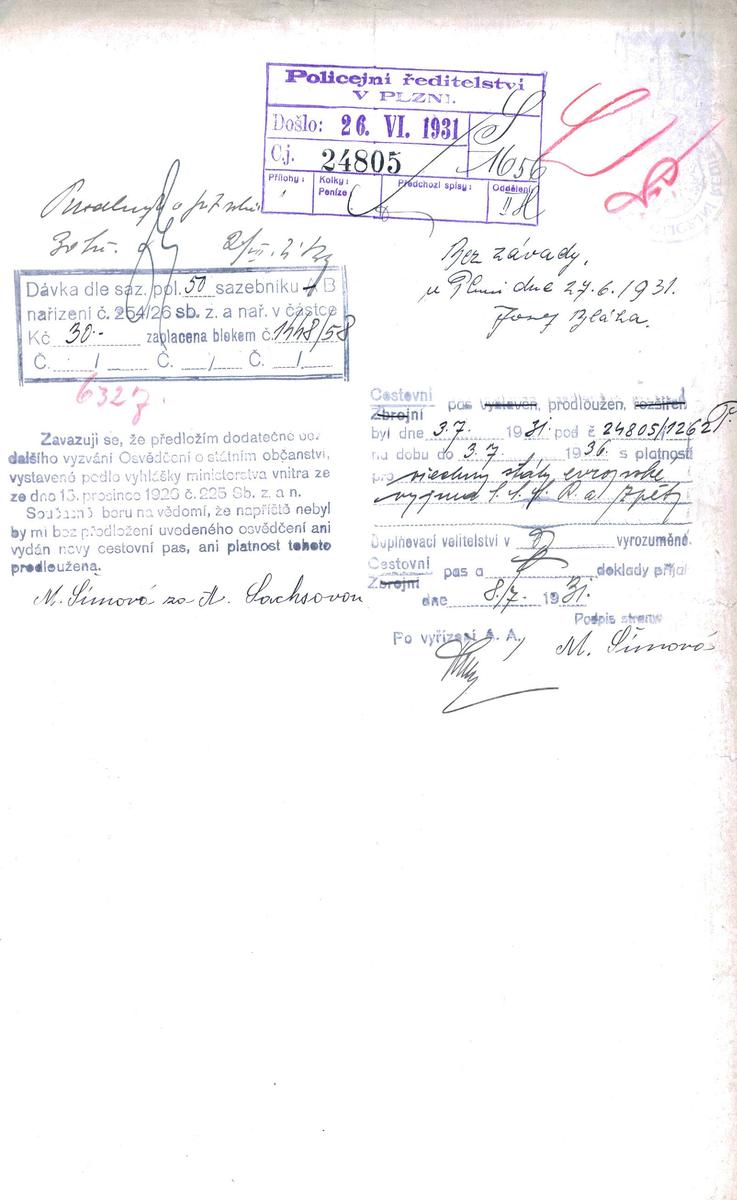 Policejní ředitelství
V PLZNI.
Došlo: 26. VI. 1931
Č.j. 24805
S
1656
Přílohy:
Kolky:
Peníze
Předchozí spisy:
Oddělení
II
Dávka dle saz. pol. 50 sazebníku B
nařízení č. 254/26 sb. z. a nař. v částce
Kč 30.- zaplacena blokem č. 1448/58
Č. / Č. / Č. /
6327
Bez závady,
v Plzni dne 27.6.1931.
Josef Bláha.
Zavazuji se, že předložím dodatečně
dalšího vyzvání Osvědčení o státním občanství,
vystavené podle vyhlášky ministerstva vnitra ze
ze dne 13. prosince 1926 č. 225 Sb. z. a n.
Současně beru na vědomí, že napříště nebyl
by mi bez předložení uvedeného osvědčení ani
vydán nový cestovní pas, ani platnost tohoto
predloužena.
M. Šimová za A. Sachsovou
Cestovní
Zbrojní pas vystaven, prodloužen, rozšířen
byl dne 3.7. 1931. pod č 24805/1262
na dobu do 3.7 1936. s platností
pro všechny státy evropské
vyjma S.S.S.R. a zpět
Doplňovací velitelství v vyrozuměné.
Cestovní
Zbrojní pas a doklady přijal
dne 8/7. 1931.
Podpis strany
Po vyřízení A. A.
M. Šimová